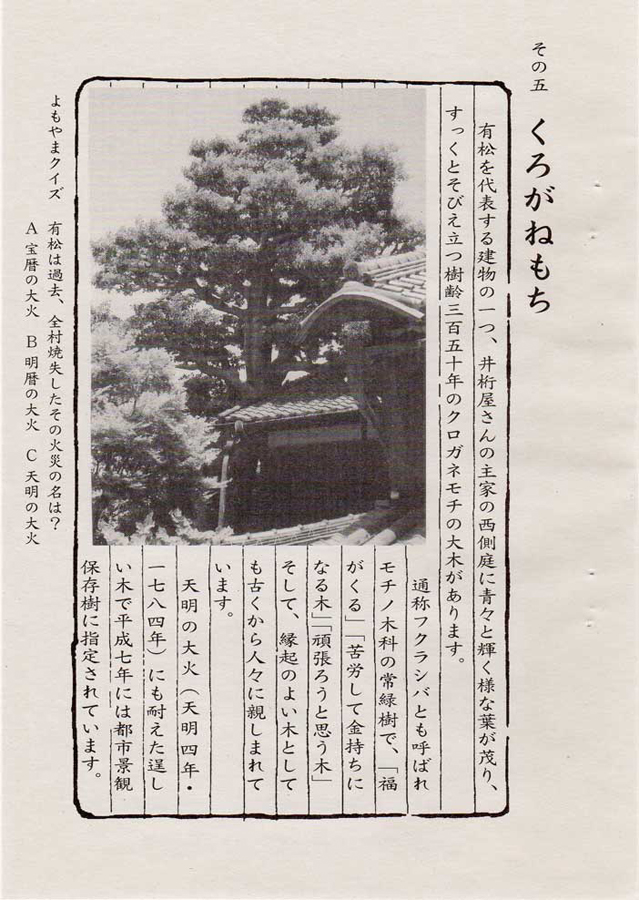 その五
くろがねもち
有松を代表する建物の一つ、井桁屋さんの主家の西側庭に青々と輝く様な葉が茂り、
すっくとそびえ立つ樹齢三百五十年のクロガネモチの大木があります。
通称フクラシバとも呼ばれ
モチノ木科の常緑樹で、「福
がくる」「苦労して金持ちに
なる木」「頑張ろうと思う木」
そして、縁起のよい木として
も古くから人々に親しまれて
います。
天明の大火（天明四年・
一七八四年）にも耐えた逞し
い木で平成七年には都市景観
保存樹に指定されています。
よもやまクイズ
有松は過去、全村焼失したその火災の名は？
A 宝暦の大火 B 明暦の大火 C 天明の大火